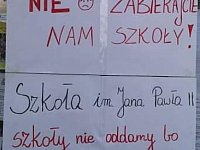 NIE ☹ ZABIERAJCIE
NAM SZKOŁY!
Szkoła im Jana Pawła II
szkoły nie oddamy bo